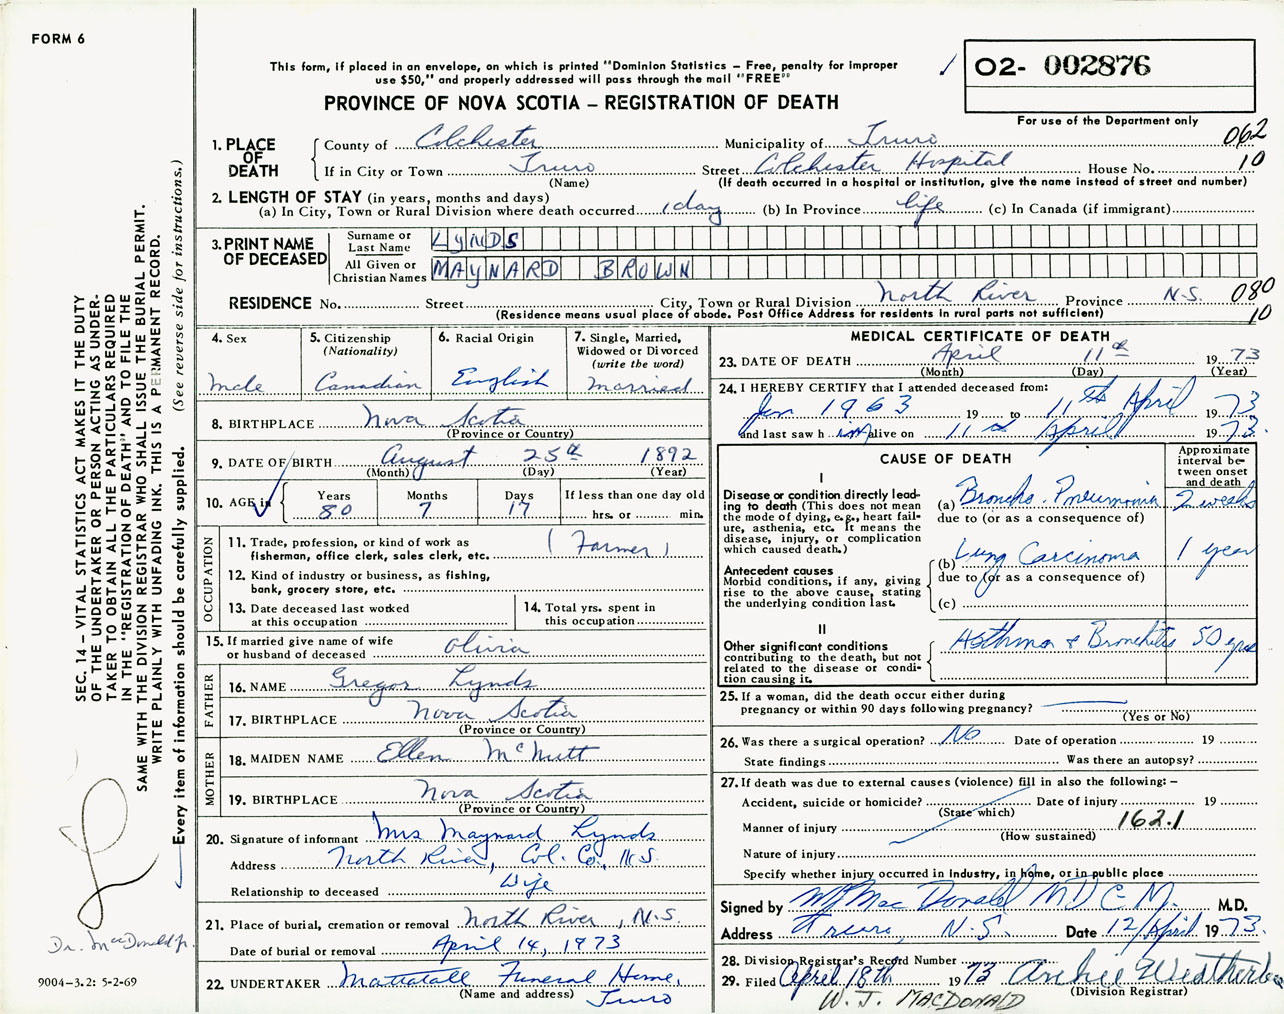 FORM 6
This form, if placed in an envelope, on which is printed "Dominion Statistics – Free, penalty for improper
use $50," and properly addressed will pass through the mail "FREE"
O2- 002876
PROVINCE OF NOVA SCOTIA – REGISTRATION OF DEATH
For use of the Department only
062
10
1. PLACE OF DEATH
County of Colchester Municipality of Truro
If in City or Town Truro Street Colchester Hospital House No.
(Name) (If death occurred in a hospital or institution, give the name instead of street and number)
2. LENGTH OF STAY (in years, months and days)
(a) In City, Town or Rural Division where death occurred 1 day (b) In Province life (c) In Canada (if immigrant)
3. PRINT NAME OF DECEASED
Surname or Last Name LYNDS
All Given or Christian Names MAYNARD BROWN
RESIDENCE No. Street City, Town or Rural Division North River Province N.S. 080
10
(Residence means usual place of abode. Post Office Address for residents in rural parts not sufficient)
4. Sex
Male
5. Citizenship
(Nationality)
Canadian
6. Racial Origin
English
7. Single, Married,
Widowed or Divorced
(write the word)
Married
8. BIRTHPLACE Nova Scotia
(Province or Country)
9. DATE OF BIRTH August 25th 1892
(Month) (Day) (Year)
10. AGE in
Years 80
Months 7
Days 17
If less than one day old
hrs. or min.
OCCUPATION
11. Trade, profession, or kind of work as
fisherman, office clerk, sales clerk, etc. (Farmer)
12. Kind of industry or business, as fishing,
bank, grocery store, etc.
13. Date deceased last worked
at this occupation
14. Total yrs. spent in
this occupation
15. If married give name of wife
or husband of deceased Olivia
FATHER
16. NAME Gregor Lynds
17. BIRTHPLACE Nova Scotia
(Province or Country)
MOTHER
18. MAIDEN NAME Ellen McNutt
19. BIRTHPLACE Nova Scotia
(Province or Country)
20. Signature of informant Mrs Maynard Lynds
Address North River, Col. Co., N.S.
Relationship to deceased Wife
21. Place of burial, cremation or removal North River, N.S.
Date of burial or removal April 14, 1973
22. UNDERTAKER Mattatall Funeral Home,
(Name and address) Truro
MEDICAL CERTIFICATE OF DEATH
23. DATE OF DEATH April 11th 1973
(Month) (Day) (Year)
24. I HEREBY CERTIFY that I attended deceased from:
Jan 1963 19 to 11th April 1973
and last saw h im alive on 11th April 1973.
CAUSE OF DEATH
Approximate
interval be-
tween onset
and death
I
Disease or condition directly lead-
ing to death (This does not mean
the mode of dying, e.g., heart fail-
ure, asthenia, etc. It means the
disease, injury, or complication
which caused death.)
(a) Broncho-Pneumonia 2 weeks
due to (or as a consequence of)
(b) Lung Carcinoma 1 year
due to (or as a consequence of)
Antecedent causes
Morbid conditions, if any, giving
rise to the above cause, stating
the underlying condition last.
(c)
II
Other significant conditions
contributing to the death, but not
related to the disease or condi-
tion causing it.
Asthma & Bronchitis 50 yrs
25. If a woman, did the death occur either during
pregnancy or within 90 days following pregnancy?
(Yes or No)
26. Was there a surgical operation? No Date of operation 19
State findings Was there an autopsy?
27. If death was due to external causes (violence) fill in also the following: –
Accident, suicide or homicide? Date of injury 19
(State which)
Manner of injury 162.1
(How sustained)
Nature of injury
Specify whether injury occurred in industry, in home, or in public place
Signed by MacDonald M.D.C.M. M.D.
Address Truro, N.S. Date 12/April 1973.
28. Division Registrar's Record Number
29. Filed April 18th 1973 Archie Weatherbee
(Division Registrar)
W. J. MACDONALD
SEC. 14 – VITAL STATISTICS ACT MAKES IT THE DUTY
OF THE UNDERTAKER OR PERSON ACTING AS UNDER-
TAKER TO OBTAIN ALL THE PARTICULARS REQUIRED
IN THE "REGISTRATION OF DEATH" AND TO FILE THE
SAME WITH THE DIVISION REGISTRAR WHO SHALL ISSUE THE BURIAL PERMIT.
WRITE PLAINLY WITH UNFADING INK. THIS IS A PERMANENT RECORD.
Every item of information should be carefully supplied. (See reverse side for instructions.)
Dr. MacDonald Jr.
9004–3.2: 5-2-69